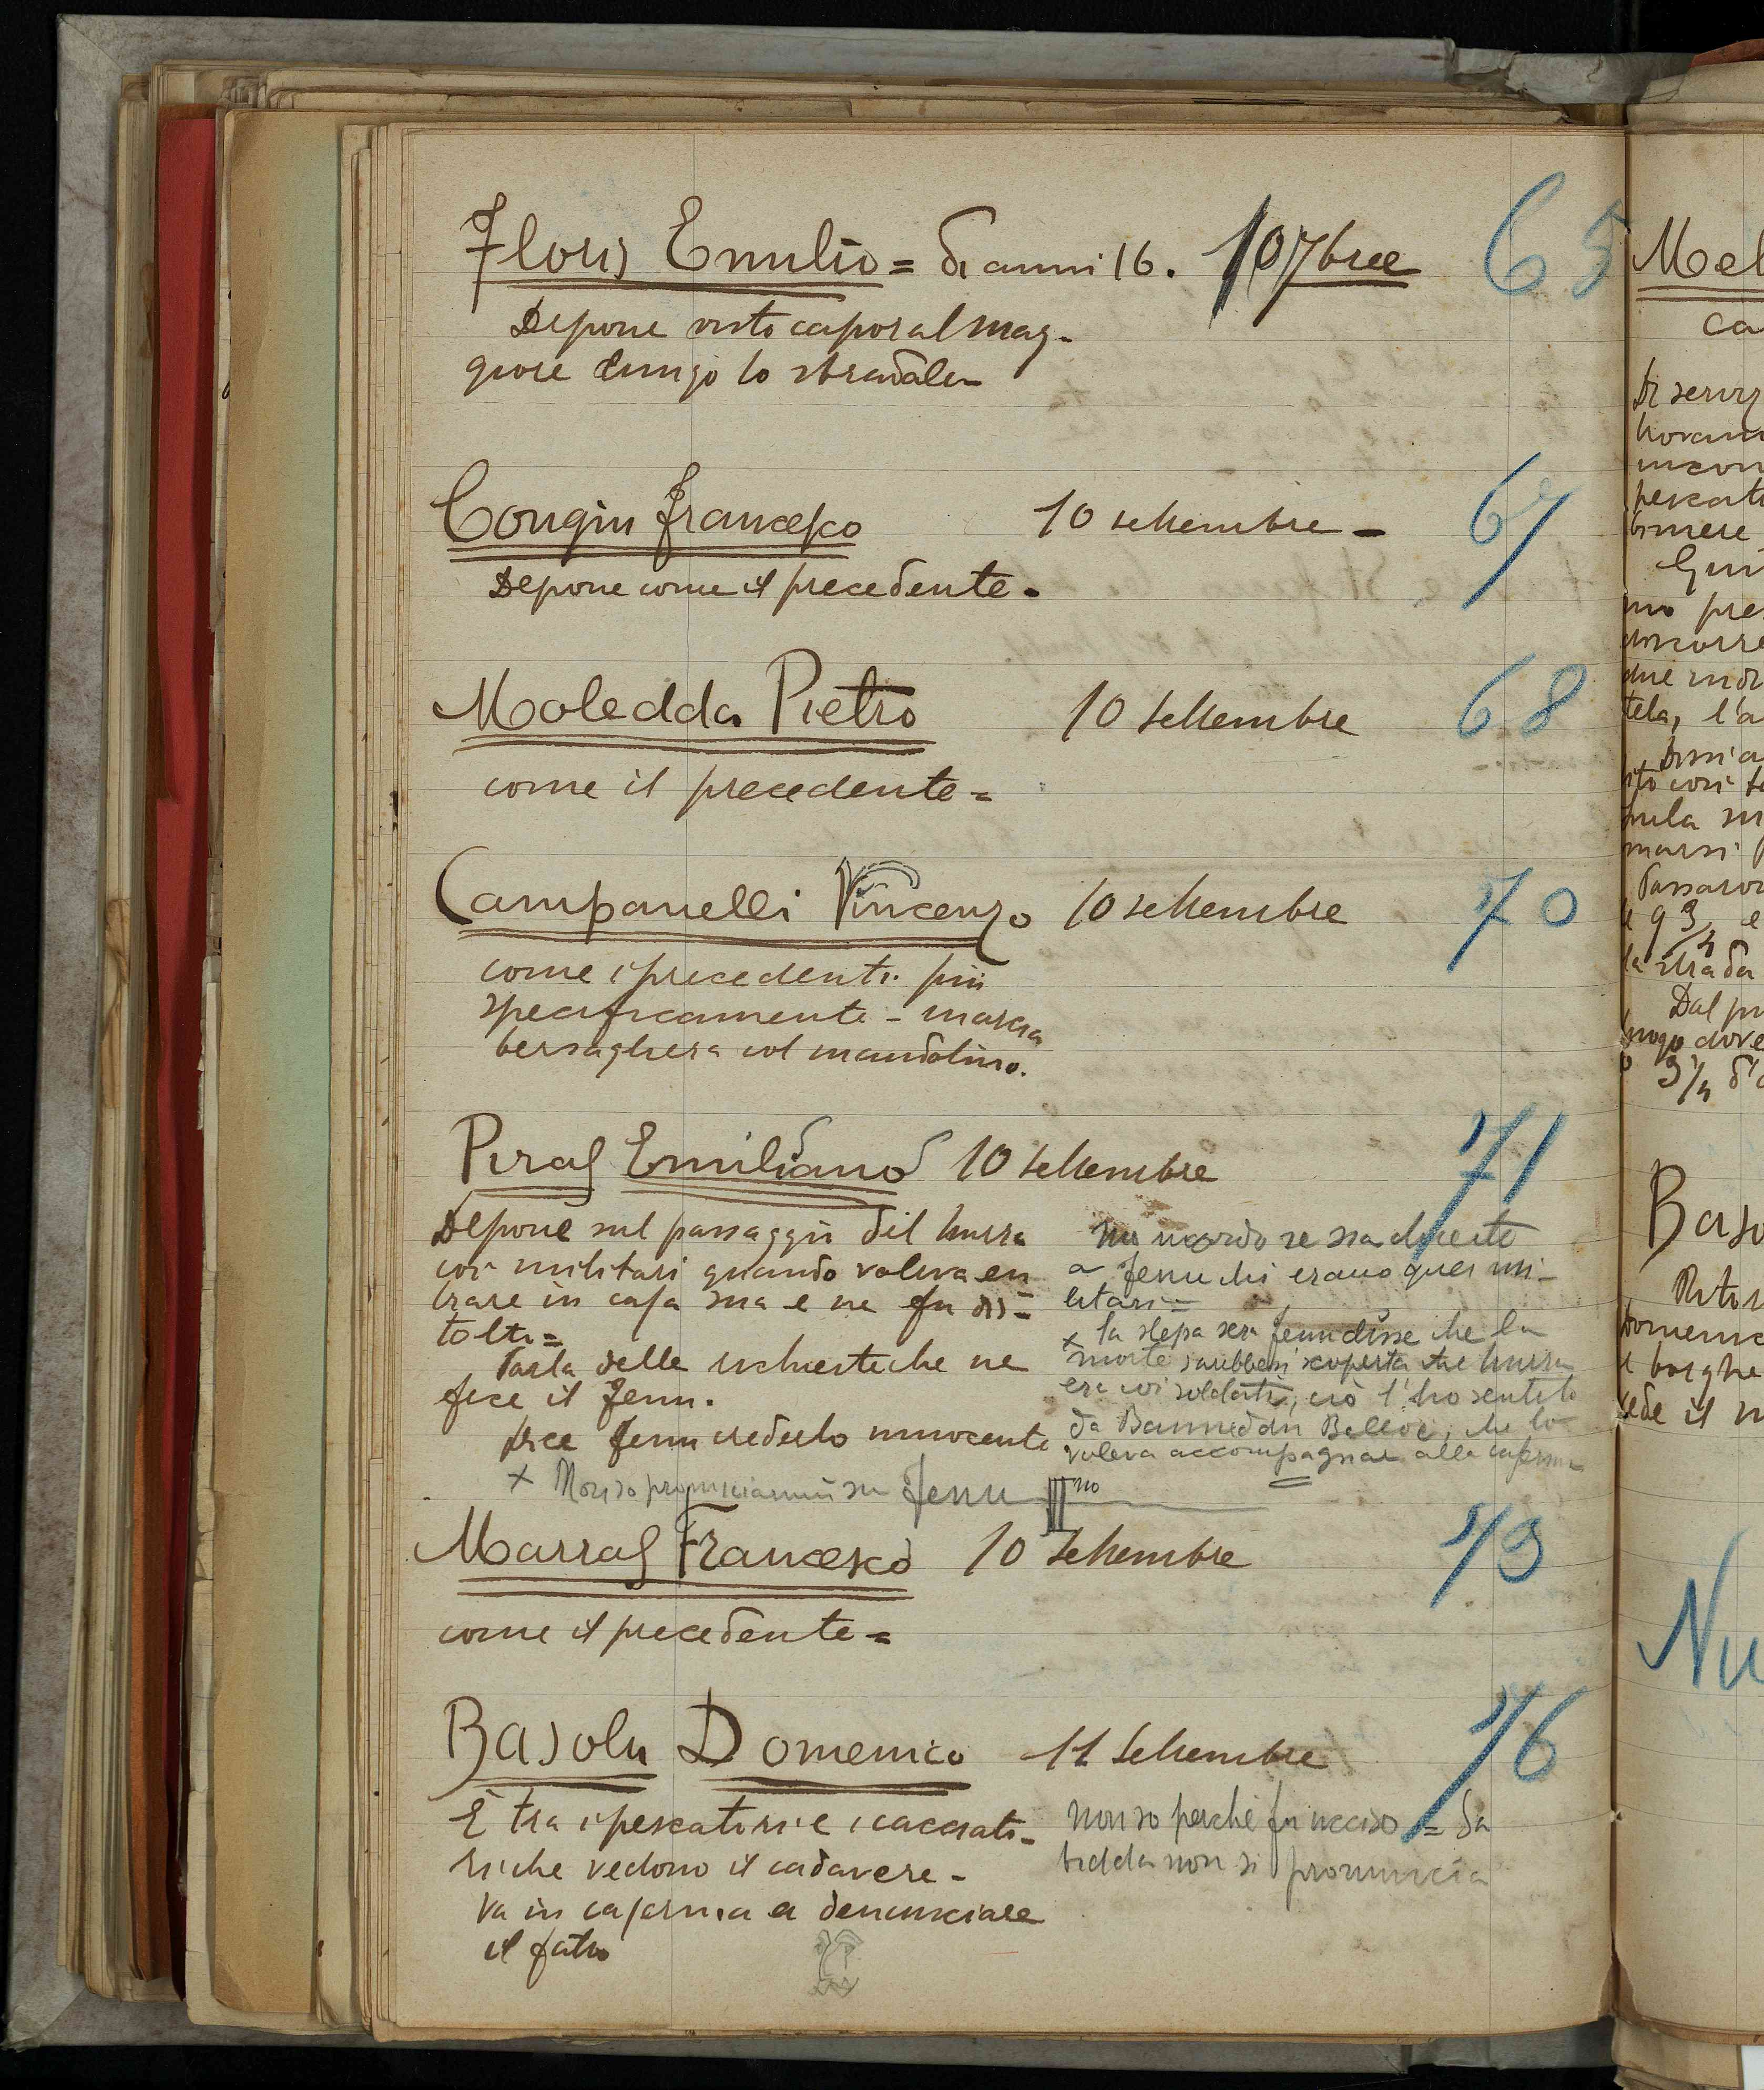 Floris Emilio = di anni 16. 10 7bre 65
Depone visto caporal mag-
giore lungo lo stradale-
Congiu Francesco 10 settembre - 67
Depone come il precedente -
Moledda Pietro 10 settembre 68
come il precedente =
Campanelli Vincenzo 10 settembre 70
come i precedenti più
specificamente - marcia
bersagliera col mandolino.
Piras Emiliano 10 settembre 71
Depone sul passaggio del
coi militari quando voleva en
trare in casa sua e ne fu dis=
tolto=
Parla delle richieste che ne
fece il Fenu.
Dice Fenu crederlo innocente
ricordo se sia chiesto
a Fenu chi erano quei mi-
litari =
x la stessa sera Fenu disse che la
morte sarebbesi scoperta che
era coi soldati, ciò l'ho sentito
da che lo
voleva accompagnar alla caserma
x Non so pronunciarmi su Fenu
Marras Francesco 10 settembre 73
come il precedente =
Basolu Domenico 11 settembre 76
È tra i pescatori e i cacciato-
ri che vedono il cadavere -
Va in caserma a denunciare
il fatto
non so perché fu ucciso = Sa
bidda non si pronuncia
Mel
ca
Di serviz
incon
pescat
mo pre
due indi
tela, l'a
ito così
marsi
e 9 3/4 e
la strada
Dal pu
luogo dove
3 1/4 d'
Baso
Rito
e borghe
vede il
Nu